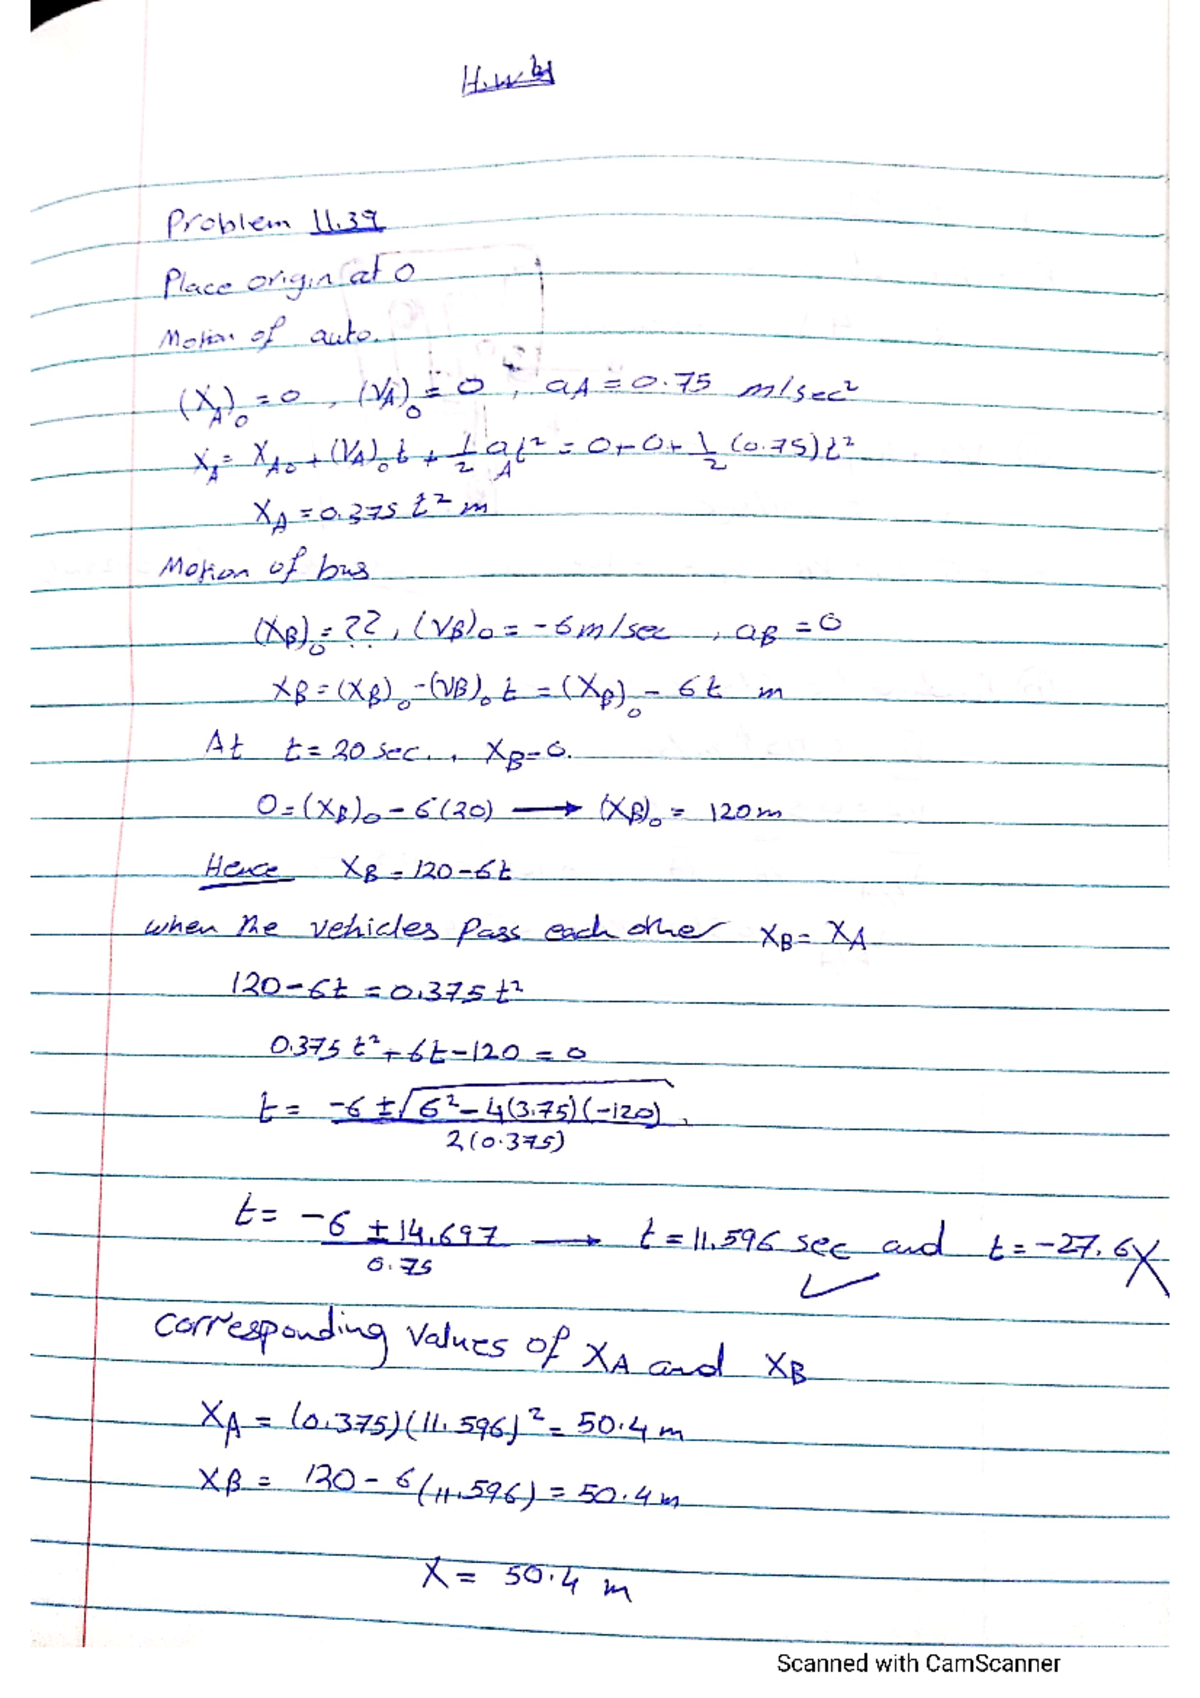 H.w
Problem 11.39
Place origin at O
Motion of auto.
(X_A)_0 = 0 , (V_A)_0 = 0 , a_A = 0.75 m/sec²
X_A = X_A0 + (V_A)_0 t + 1/2 a_A t² = 0 + 0 + 1/2 (0.75) t²
X_A = 0.375 t² m
Motion of bus
(X_B)_0 = ?? , (V_B)_0 = -6 m/sec , a_B = 0
X_B = (X_B)_0 - (V_B)_0 t = (X_B)_0 - 6t m
At t = 20 sec. , X_B = 0.
0 = (X_B)_0 - 6(20) → (X_B)_0 = 120 m
Hence X_B = 120 - 6t
when the vehicles pass each other X_B = X_A
120 - 6t = 0.375 t²
0.375 t² + 6t - 120 = 0
t = (-6 ± √(6² - 4(3.75)(-120))) / 2(0.375)
t = (-6 ± 14.697) / 0.75 → t = 11.596 sec ✓ and t = -27.6 X
Corresponding values of X_A and X_B
X_A = (0.375)(11.596)² = 50.4 m
X_B = 120 - 6(11.596) = 50.4 m
X = 50.4 m
Scanned with CamScanner